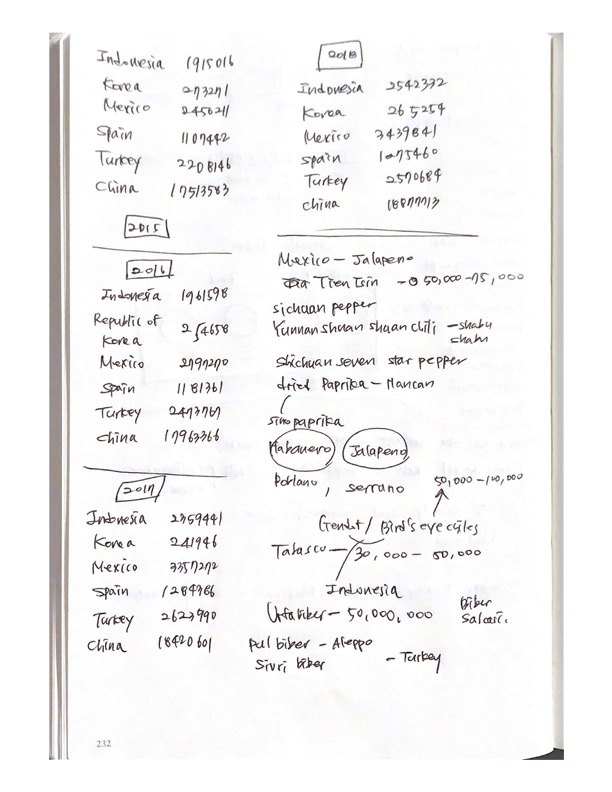 Indonesia 1915016
Korea 273271
Mexico 2456211
Spain 1107442
Turkey 2208146
China 17513583
2015
2016
Indonesia 1961598
Republic of
Korea 254658
Mexico 2797270
Spain 1181361
Turkey 2473767
China 17963366
2017
Indonesia 2359441
Korea 241946
Mexico 3357272
Spain 1284986
Turkey 2623990
China 18420601
2018
Indonesia 2542332
Korea 265254
Mexico 3439841
Spain 1275460
Turkey 2570684
China 18877713
Mexico - Jalapeno
Tien Tsin - 50,000 - 75,000
sichuan pepper
Yunnan shuan shuan chili - shabu
shabu
Shichuan seven star pepper
dried Paprika -
sinopaprika
Habanero Jalapeno
Poblano, serrano 50,000 - 100,000
Gendot / Bird's eye
Tabasco - 30,000 - 50,000
Indonesia
Urfa biber - 50,000,000 Biber
Pul biber - Aleppo
Sivri biber - Turkey
232